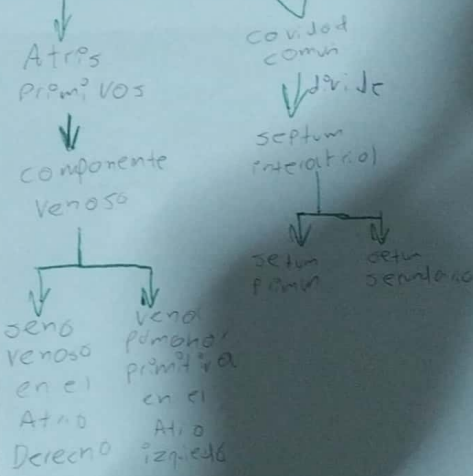 Atrios
primitivos
componente
venoso
seno
venoso
en el
Atrio
Derecho
vena
pumonar
primitiva
en el
Atio
izquiedo
cavidad
comun
divide
septum
interatrial
setum
primun
setum
secundario